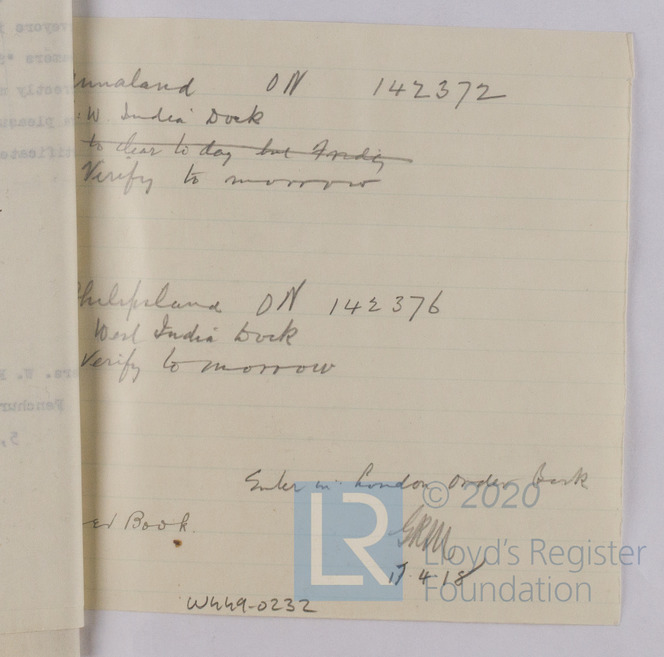 nnaland ON 142372
W. India Dock
to clear to day but
Verify to morrow
Philipsland ON 142376
West India Dock
Verify to morrow
Enter in London Order Book
er Book.
GRM
17.4.18
W449-0232
© 2020
LR
Lloyd's Register
Foundation